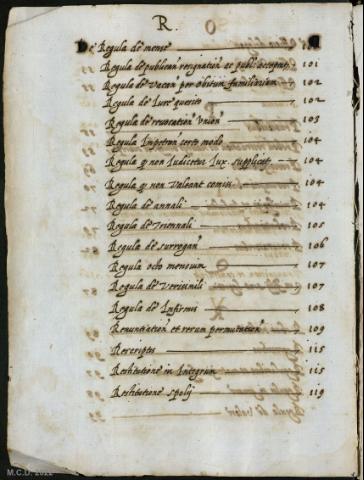 R.
De Regula de mense
Regula de publican' resignation' ac publ. accepsi 101
Regula de Vacan' per obitum familiarium 102
Regula de Iure quesito 102
Regula de revocation' Vnion' 103
Regula Impetran' certo modo 104
Regula q' non Iudicetur Iux. supplicat. 104
Regula q' non Valeant comiss. 104
Regula de annali 104
Regula de Triennali 105
Regula de surrogan' 106
Regula octo mensium 107
Regula de Verisimili 107
Regula de Infirmis 108
Renuntiation' et rerum permutation' 109
Rescriptis 115
Restitutione in Integrum 115
Restitutione spolij 119
M.C.D. 2022